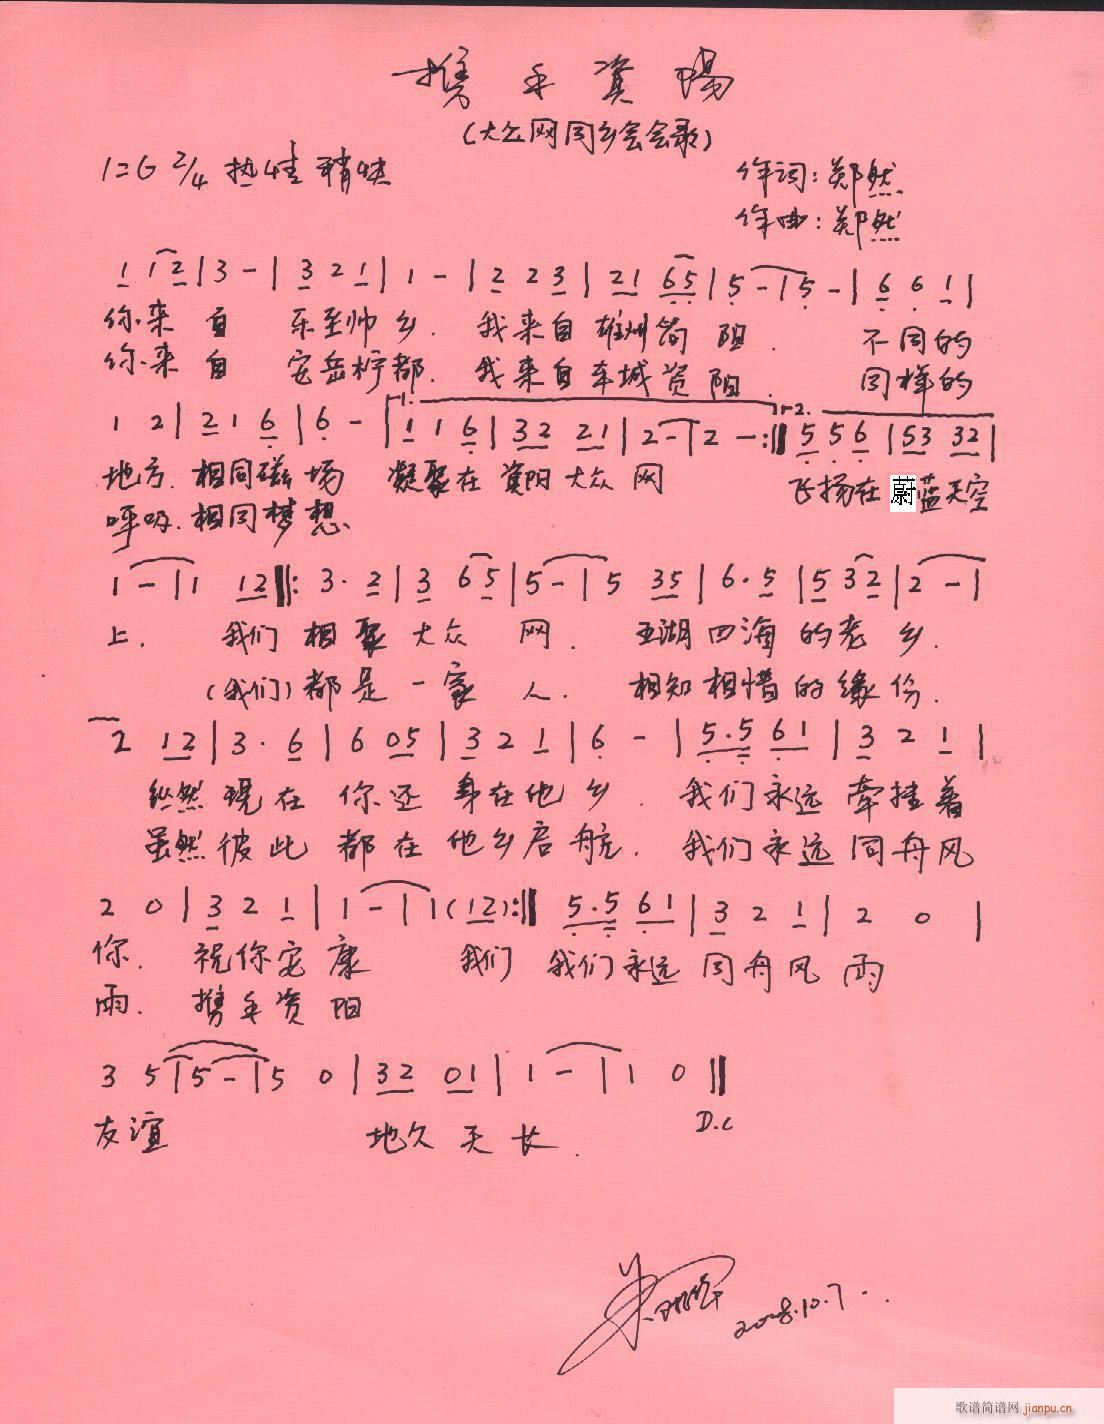 携手资阳
(大众网同乡会会歌)
1=G 2/4 热情 稍快
作词:郑然
作曲:郑然
1 1 2 | 3 - | 3 2 1 | 1 - | 2 2 3 | 2 1 6 5 | 5 - | 5 - | 6 6 1 |
你来自 乐至帅乡. 我来自雄州简阳. 不同的
你来自 安岳柠都. 我来自车城资阳. 同样的
1 2 | 2 1 6 | 6 - | 1. 1 1 6 | 3 2 2 1 | 2 - | 2 - :‖ 2. 5 5 6 | 5 3 3 2 |
地方. 相同磁场 凝聚在资阳大众网 飞扬在蔚蓝天空
呼吸. 相同梦想.
1 - | 1 1 2 ‖: 3 · 2 | 3 6 5 | 5 - | 5 3 5 | 6 · 5 | 5 3 2 | 2 - |
上. 我们相聚大众网. 五湖四海的老乡.
(我们)都是一家人. 相知相惜的缘份.
2 1 2 | 3 · 6 | 6 0 5 | 3 2 1 | 6 - | 5 · 5 6 1 | 3 2 1 |
纵然现在你还身在他乡. 我们永远牵挂着
虽然彼此都在他乡启航. 我们永远同舟风
2 0 | 3 2 1 | 1 - | 1 (1 2) :‖ 5 · 5 6 1 | 3 2 1 | 2 0 |
你. 祝你安康 我们 我们永远同舟风雨
雨. 携手资阳
3 5 | 5 - | 5 0 | 3 2 0 1 | 1 - | 1 0 ‖
友谊 地久天长. D.C
2008.10.7
歌谱简谱网 jianpu.cn